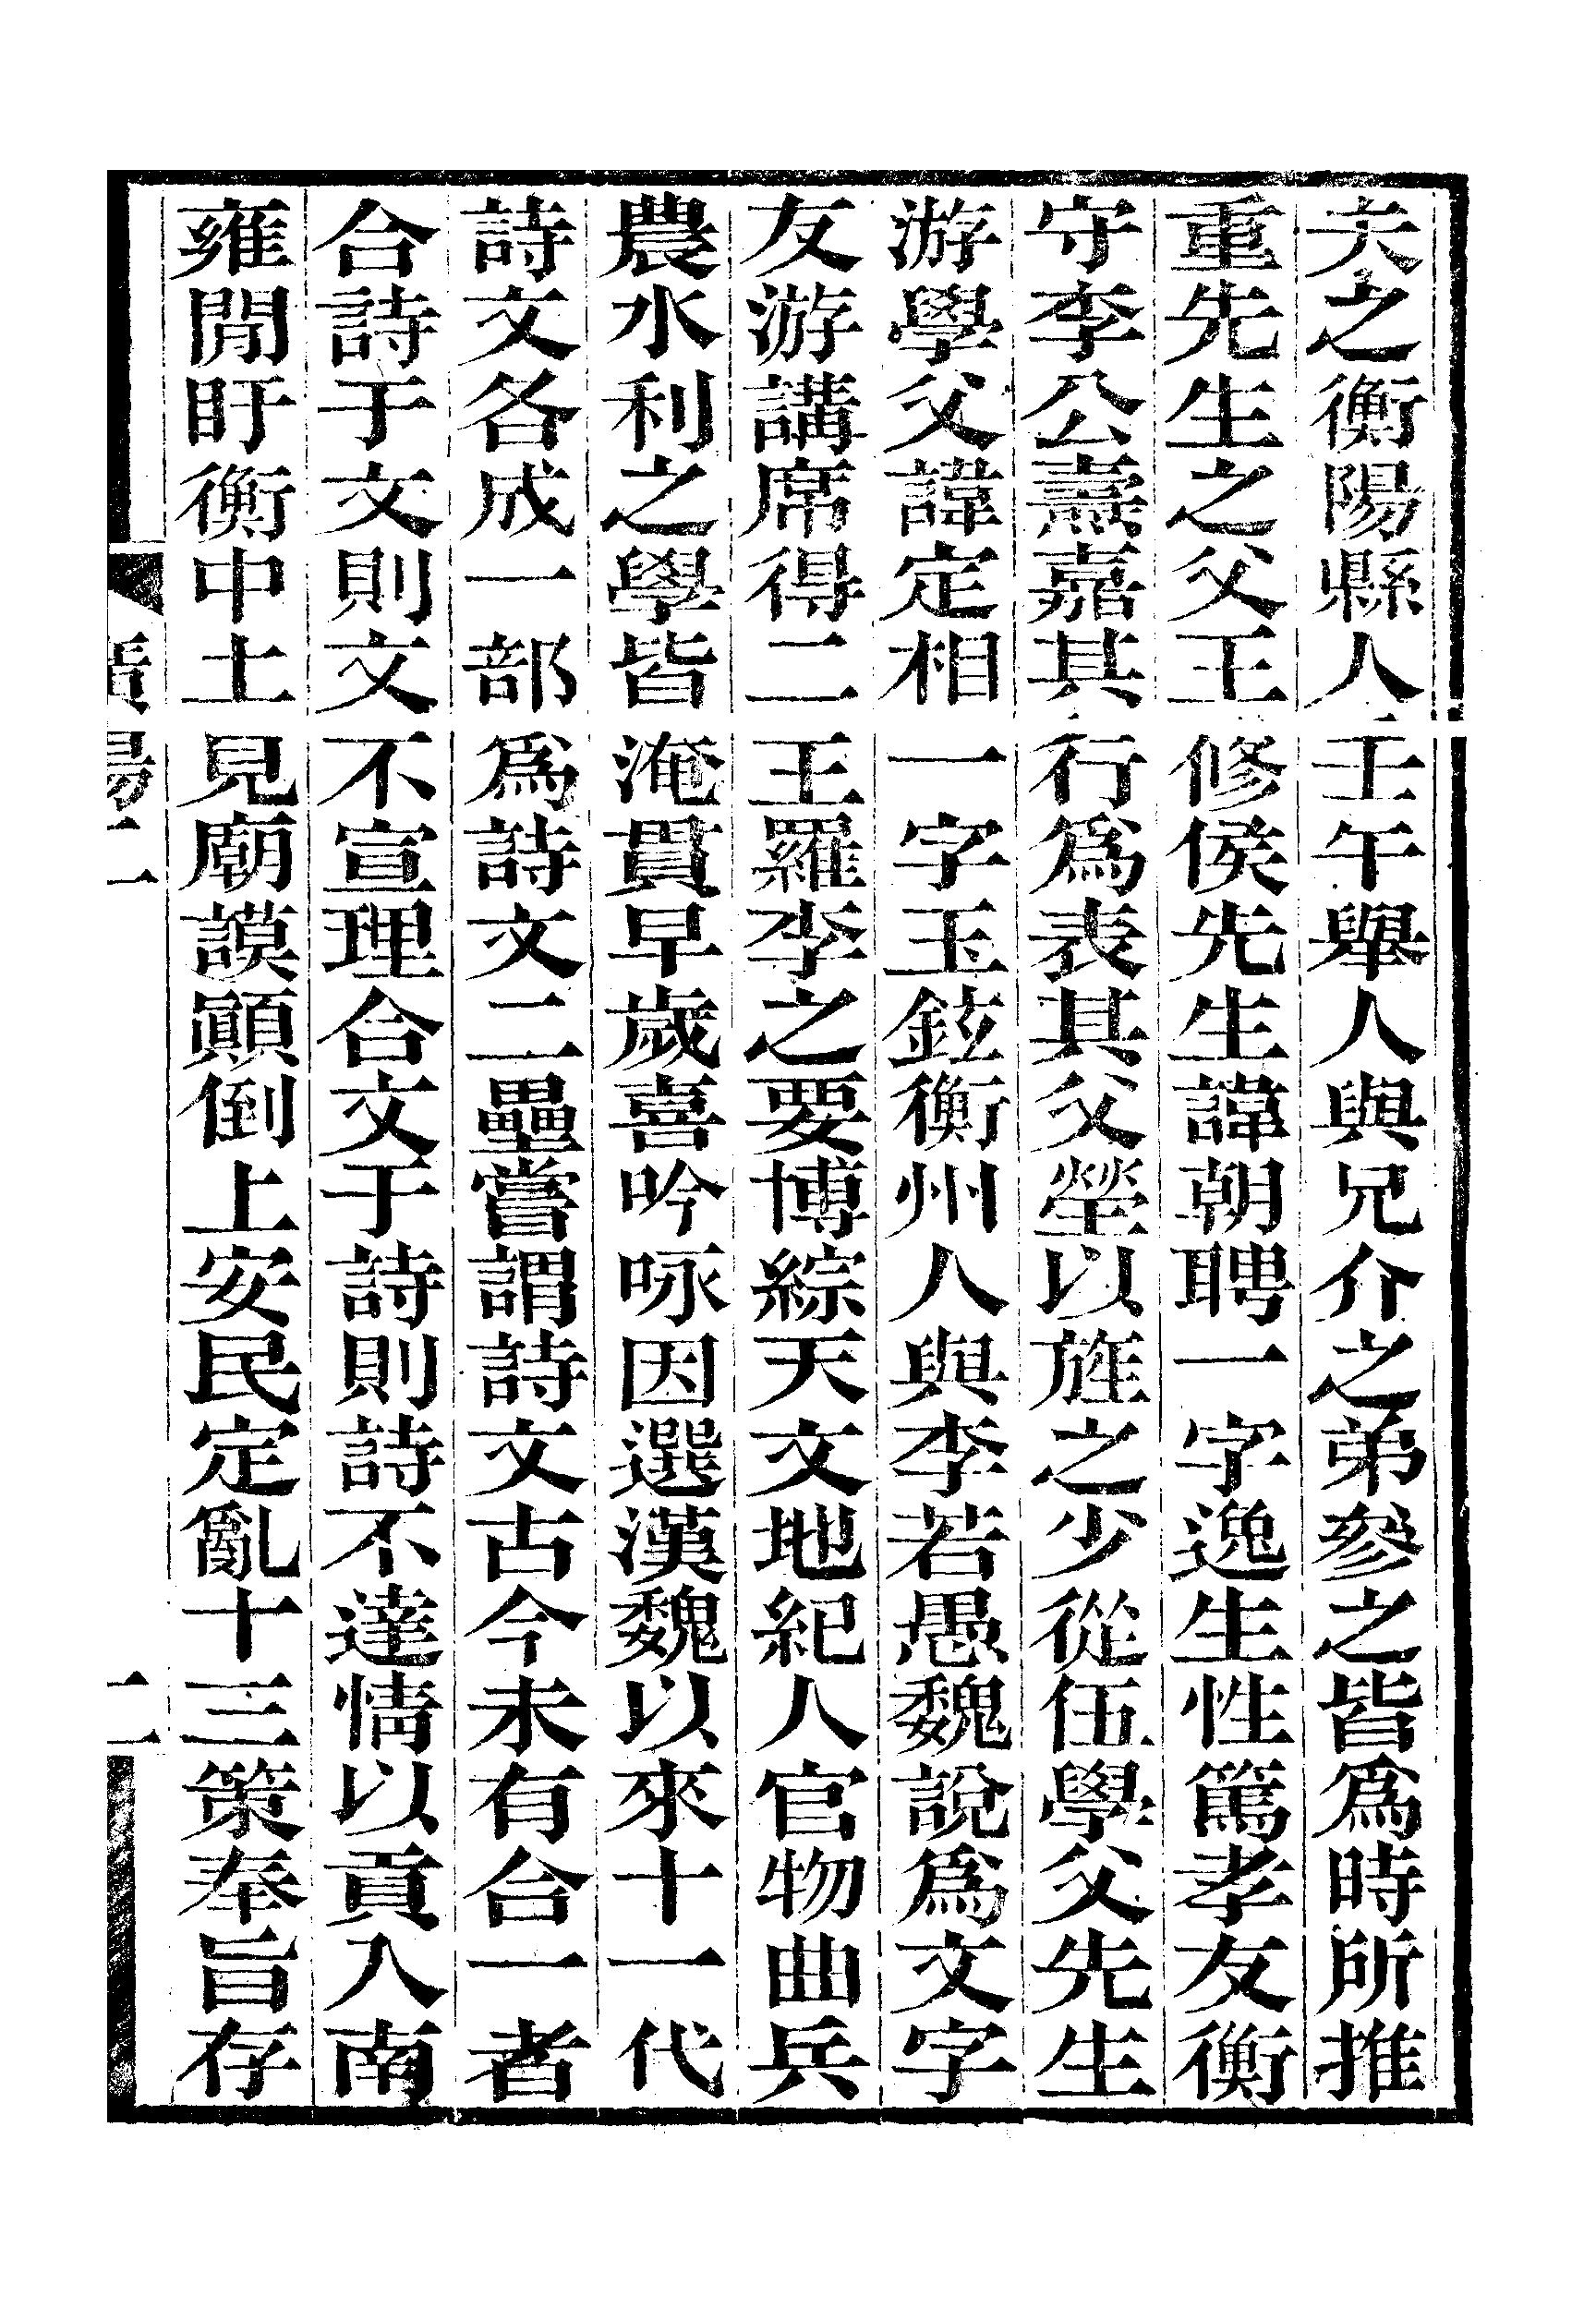 夫之衡陽縣人壬午舉人與兄介之弟參之皆爲時所推
重先生之父王修侯先生諱朝聘一字逸生性篤孝友衡
守李公燾嘉其行爲表其父塋以旌之少從伍學父先生
游學父諱定相一字玉鉉衡州人與李若愚魏說爲文字
友游講席得二王羅李之要博綜天文地紀人官物曲兵
農水利之學皆淹貫早歲喜吟咏因選漢魏以來十一代
詩文各成一部爲詩文二壘嘗謂詩文古今未有合一者
合詩于文則文不宣理合文于詩則詩不達情以貢入南
雍閒盱衡中土見廟謨顚倒上安民定亂十三策奉旨存
二